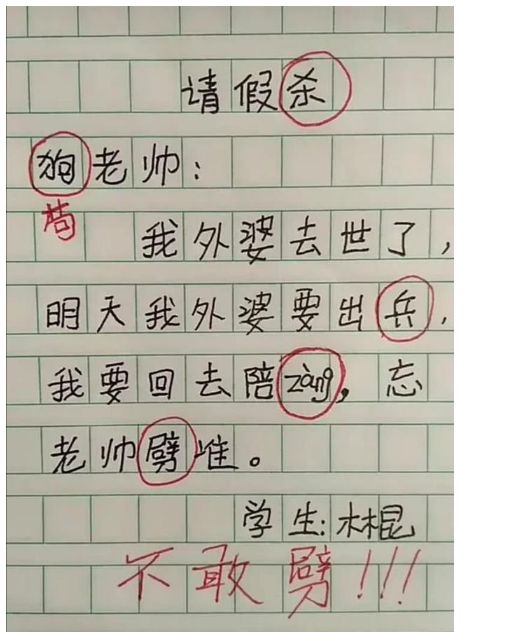 请假杀
狗老帅：
苟
我外婆去世了，
明天我外婆要出兵，
我要回去陪zàng，忘
老帅劈准。
学生：木棍
不敢劈!!!